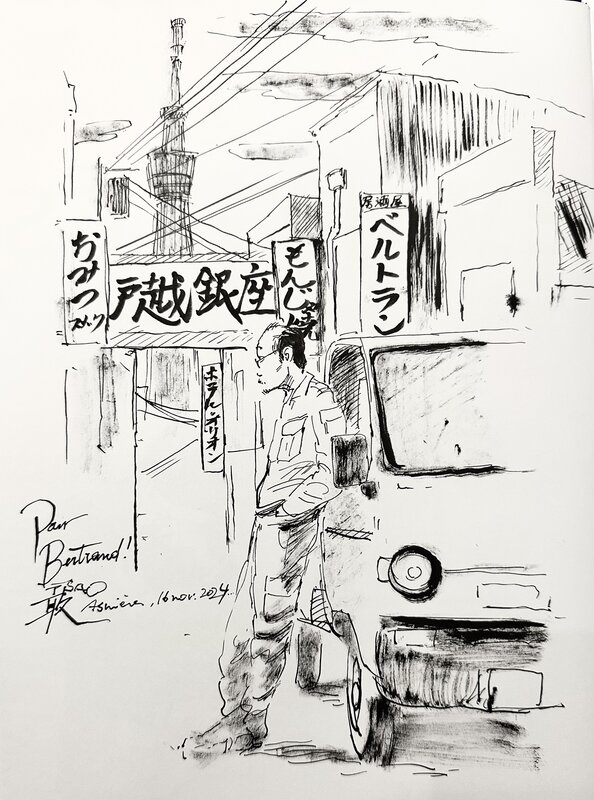 おみつ
スナック
戸越銀座
もんじゃ焼
居酒屋
ベルトラン
ホテルオリオン
Pour
Bertrand!
ISAO
Asnières, 16 nov. 2024.